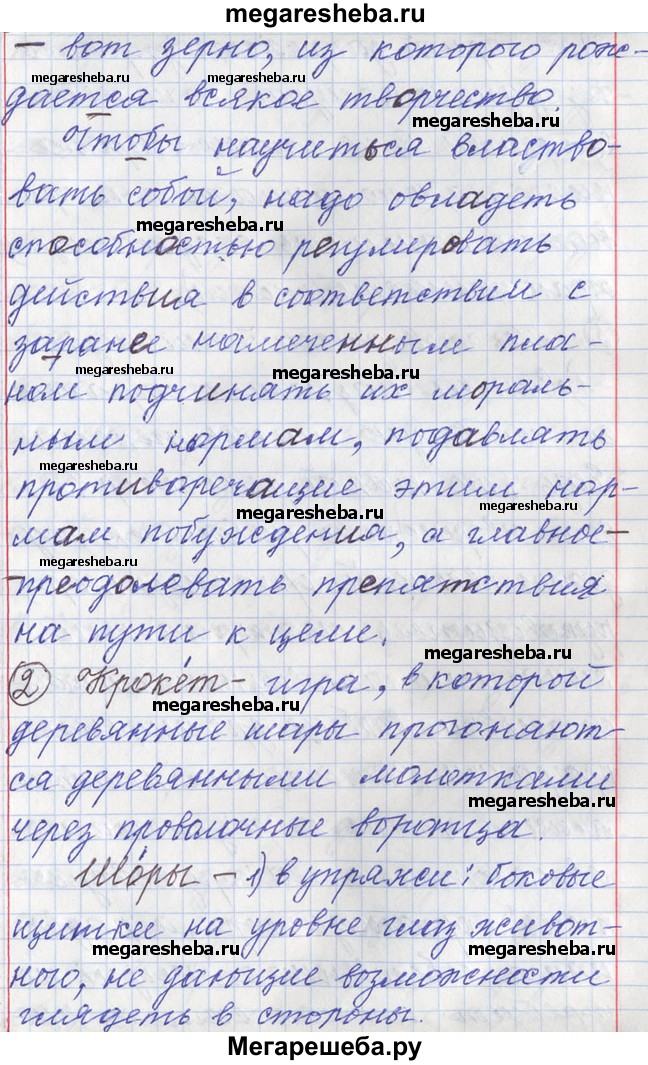 megaresheba.ru
— вот зерно, из которого рож-
megaresheba.ru
megaresheba.ru
дается всякое творчество.
megaresheba.ru
Чтобы научиться властво-
вать собой, надо овладеть
megaresheba.ru
способностью регулировать
действия в соответствии с
megaresheba.ru
заранее намеченным пла-
megaresheba.ru
ном подчинять их мораль-
ным нормам, подавлять
megaresheba.ru
противоречащие этим нор-
megaresheba.ru
мам побуждения, а главное —
— преодолевать препятствия
на пути к цели.
megaresheba.ru
② Крокéт – игра, в которой
megaresheba.ru
деревянные шары прогоняют-
ся деревянными молотками
megaresheba.ru
через проволочные воротца.
Шóры – 1) в упряжи: боковые
щитки на уровне глаз живот-
megaresheba.ru
megaresheba.ru
ного, не дающие возможности
глядеть в стороны.
Мегарешеба.ру